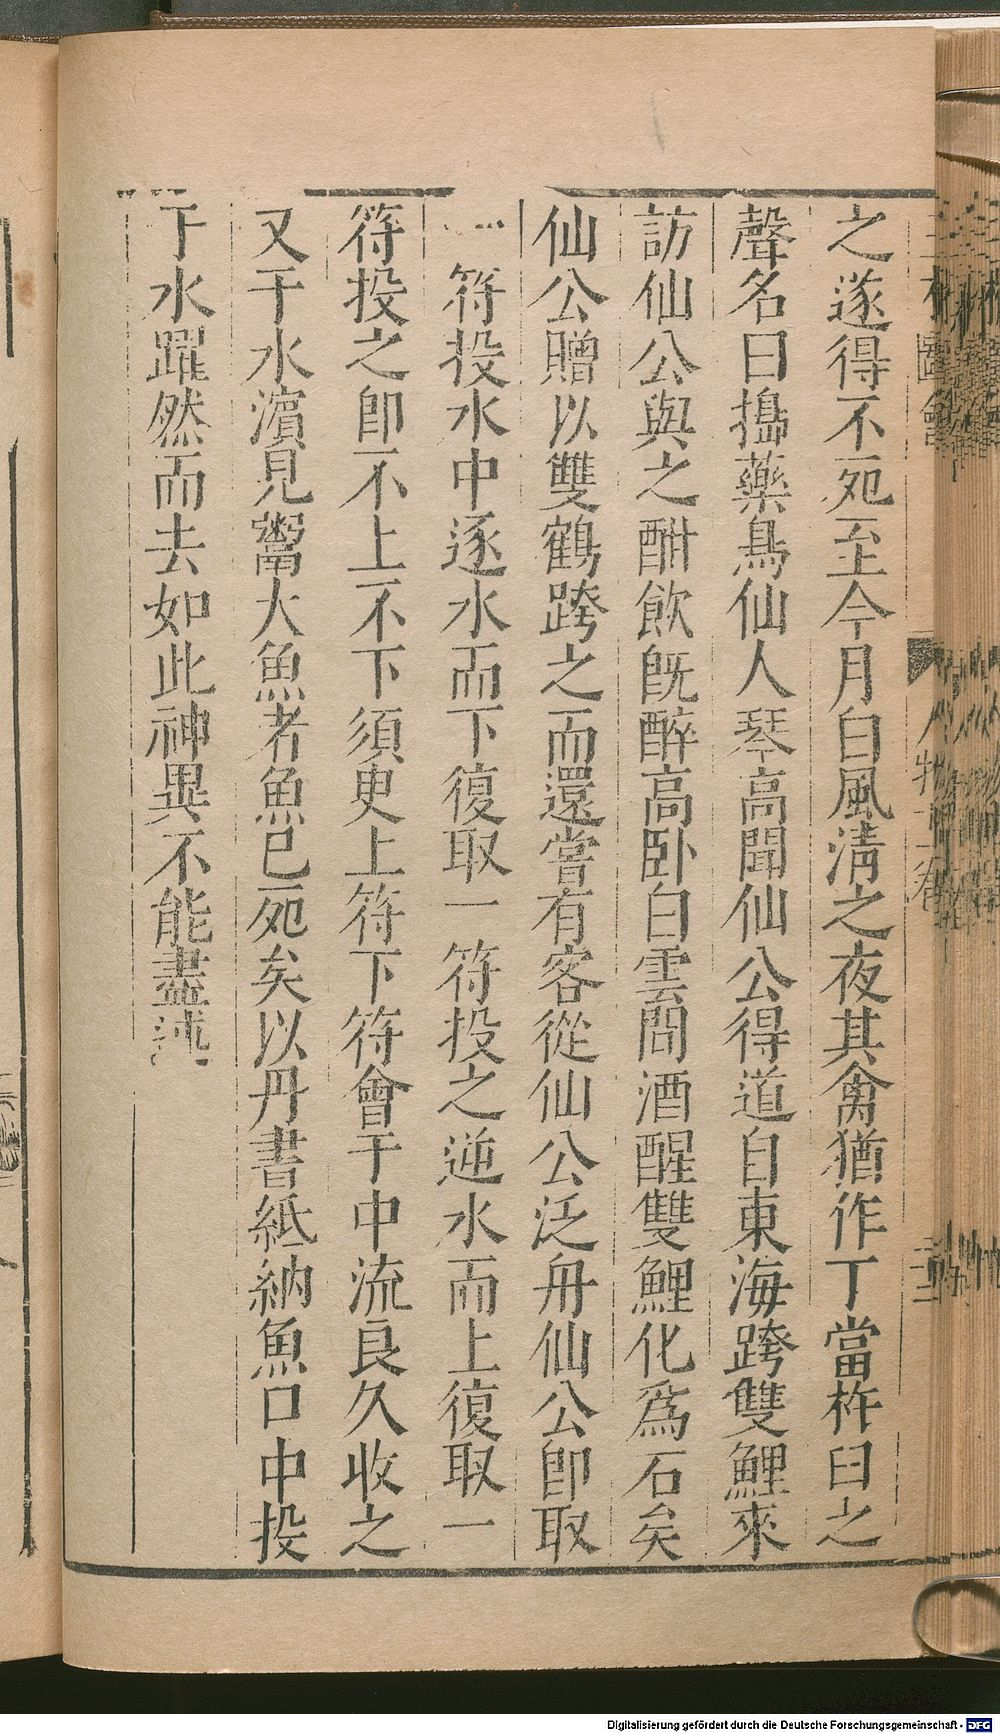 之遂得不死至今月白風清之夜其禽猶作丁當杵臼之
聲名曰搗藥鳥仙人琴高聞仙公得道自東海跨雙鯉來
訪仙公與之酣飲既醉高卧白雲間酒醒雙鯉化爲石矣
仙公贈以雙鶴跨之而還嘗有客從仙公泛舟仙公卽取
一符投水中逐水而下復取一符投之逆水而上復取一
符投之卽不上不下須臾上符下符會于中流良久收之
又于水濵見鬻大魚者魚已死矣以丹書紙納魚口中投
于水躍然而去如此神異不能盡述
圖會
人物
Digitalisierung gefördert durch die Deutsche Forschungsgemeinschaft - DFG